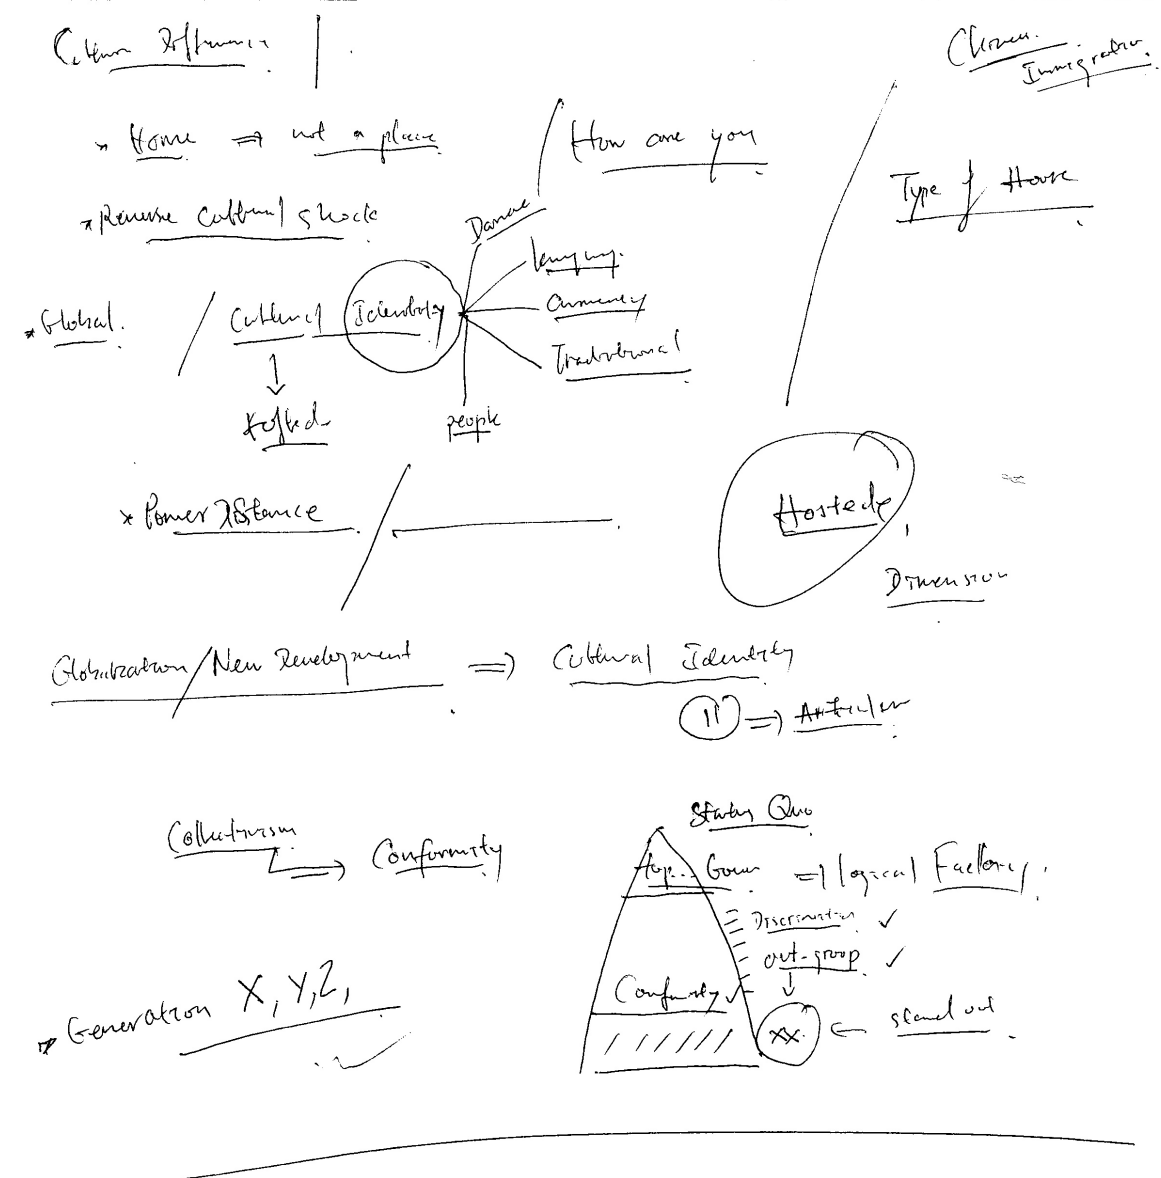 Culture Difference
Chinese
Immigration
* Home => not a place
How are you
Type of House
* Reverse Cultural shock
Dance
* Global
Cultural Identity
currency
Traditional
people
* Power Distance
Hostede
Dimension
Globalization/New Development => Cultural Identity
11 =>
Collectivism
=> Conformity
Status Quo
Top... Govn => logical
Discrimination ✓
out-group ✓
Conformity ✓
xx. <= stand out
* Generation X, Y, Z,